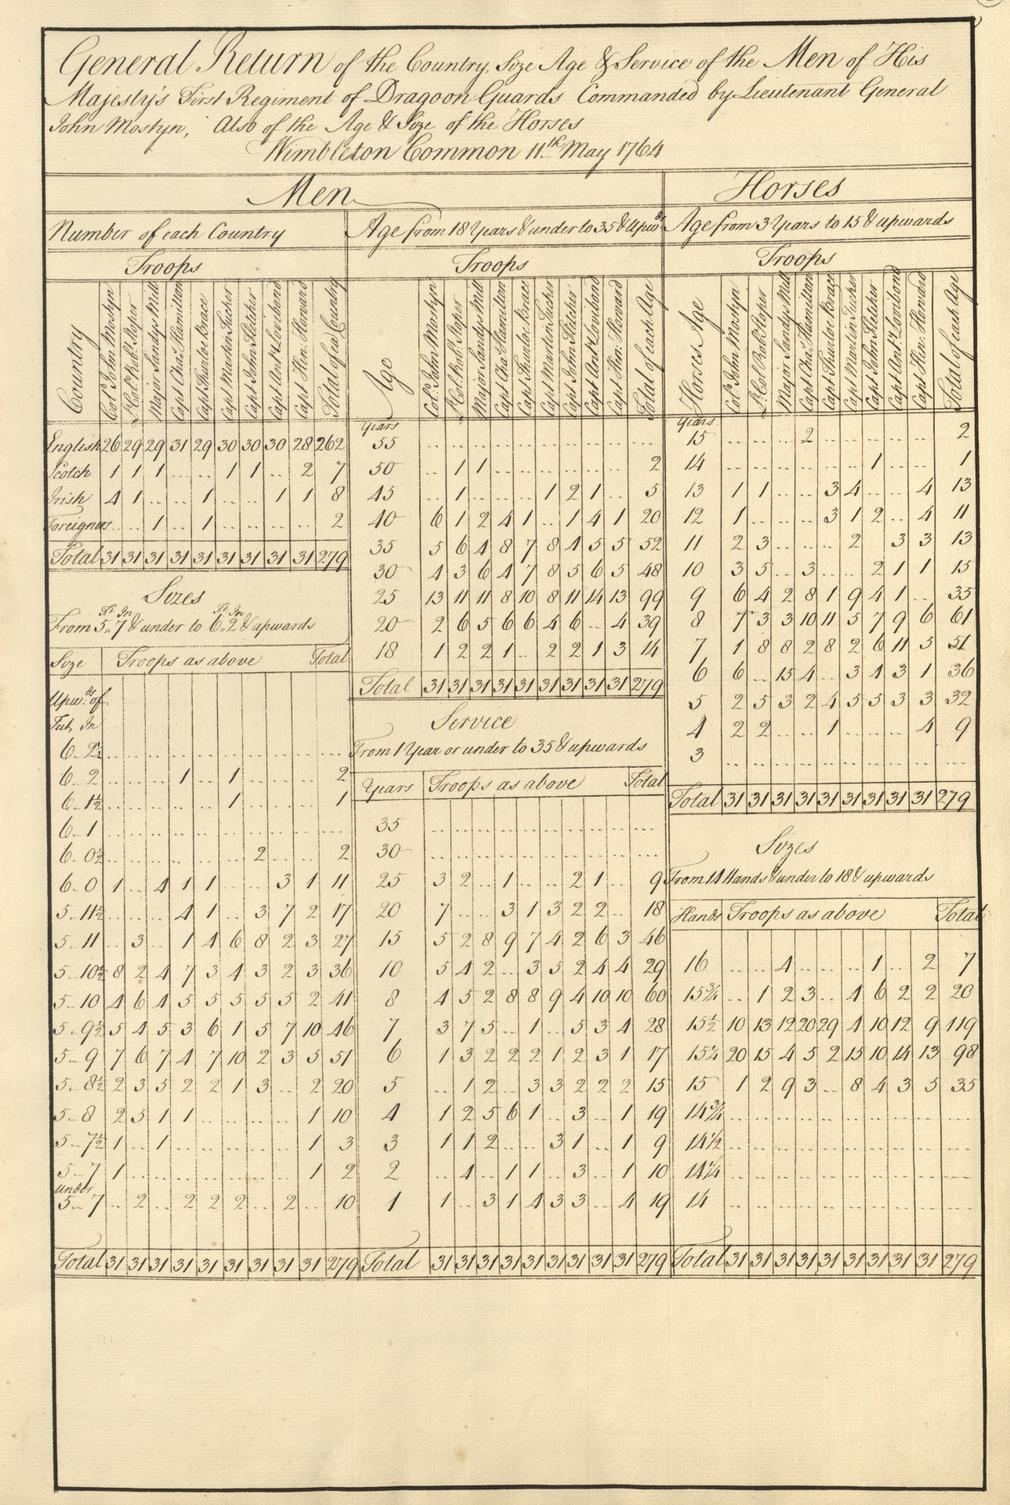 General Return of the Country, Size Age & Service of the Men of His
Majesty's First Regiment of Dragoon Guards Commanded by Lieutenant General
John Mostyn, Also of the Age & Size of the Horses
Wimbleton Common 11th May 1764
Men
Number of each Country
Troops
Country Col. John Mostyn Lt. Col. Robt. Sloper Major Sandys Mill Capt Chas. Hamilton Capt Searle Brace Capt Martin Tucher Capt John Fletcher Capt Ant. Lovibond Capt Hen. Howard Total of ea. Country
English 26 29 29 31 29 30 30 30 28 262
Scotch 1 1 1 .. .. 1 1 .. 2 7
Irish 4 1 .. .. 1 .. .. 1 1 8
Foreigners .. .. 1 .. 1 .. .. .. .. 2
Total 31 31 31 31 31 31 31 31 31 279
Sizes
From 5 Ft 7 In & under to 6 Ft 2 In & upwards
Size Troops as above Total
Upwds of
Fut. In
6.. 2½ .. .. .. .. .. .. .. .. .. ..
6.. 2 .. .. .. 1 .. 1 .. .. .. 2
6.. 1½ .. .. .. .. .. 1 .. .. .. 1
6.. 1 .. .. .. .. .. .. .. .. .. ..
6.. 0½ .. .. .. .. .. .. 2 .. .. 2
6.. 0 1 .. 4 1 1 .. .. 3 1 11
5.. 11½ .. .. .. 4 1 .. 3 7 2 17
5.. 11 .. 3 .. 1 4 6 8 2 3 27
5.. 10½ 8 2 4 7 3 4 3 2 3 36
5.. 10 4 6 4 5 5 5 5 5 2 41
5.. 9½ 5 4 5 3 6 1 5 7 10 46
5.. 9 7 6 7 4 7 10 2 3 5 51
5.. 8½ 2 3 5 2 2 1 3 .. 2 20
5.. 8 2 5 1 1 .. .. .. .. 1 10
5.. 7½ 1 .. 1 .. .. .. .. .. 1 3
5.. 7 1 .. .. .. .. .. .. .. 1 2
under
5.. 7 .. 2 .. 2 2 2 .. 2 .. 10
Total 31 31 31 31 31 31 31 31 31 279
Age from 18 Years & under to 35 & upwds
Troops
Age Col. John Mostyn Lt. Col. Robt. Sloper Major Sandys Mill Capt Chas. Hamilton Capt Searle Brace Capt Martin Tucher Capt John Fletcher Capt Ant. Lovibond Capt Hen. Howard Total of each Age
Years
55 .. .. .. .. .. .. .. .. .. ..
50 .. 1 1 .. .. .. .. .. .. 2
45 .. 1 .. .. .. 1 2 1 .. 5
40 6 1 2 4 1 .. 1 4 1 20
35 5 6 4 8 7 8 4 5 5 52
30 4 3 6 4 7 8 5 6 5 48
25 13 11 11 8 10 8 11 14 13 99
20 2 6 5 6 6 4 6 .. 4 39
18 1 2 2 1 .. 2 2 1 3 14
Total 31 31 31 31 31 31 31 31 31 279
Service
From 1 Year or under to 35 & upwards
Years Troops as above Total
35 .. .. .. .. .. .. .. .. .. ..
30 .. .. .. .. .. .. .. .. .. ..
25 3 2 .. 1 .. .. 2 1 .. 9
20 7 .. .. 3 1 3 2 2 .. 18
15 5 2 8 9 7 4 2 6 3 46
10 5 4 2 .. 3 5 2 4 4 29
8 4 5 2 8 8 9 4 10 10 60
7 3 7 5 .. 1 .. 5 3 4 28
6 1 3 2 2 2 1 2 3 1 17
5 .. 1 2 .. 3 3 2 2 2 15
4 1 2 5 6 1 .. 3 .. 1 19
3 1 1 2 .. .. 3 1 .. 1 9
2 .. 4 .. 1 1 .. 3 .. 1 10
1 1 .. 3 1 4 3 3 .. 4 19
Total 31 31 31 31 31 31 31 31 31 279
Horses
Age from 3 Years to 15 & upwards
Troops
Horses Age Col. John Mostyn Lt. Col. Robt. Sloper Major Sandys Mill Capt Chas. Hamilton Capt Searle Brace Capt Martin Tucher Capt John Fletcher Capt Ant. Lovibond Capt Hen. Howard Total of each Age
Years
15 .. .. .. 2 .. .. .. .. .. 2
14 .. .. .. .. .. .. 1 .. .. 1
13 1 1 .. .. 3 4 .. .. 4 13
12 1 .. .. .. 3 1 2 .. 4 11
11 2 3 .. .. .. 2 .. 3 3 13
10 3 5 .. 3 .. .. 2 1 1 15
9 6 4 2 8 1 9 4 1 .. 35
8 7 3 3 10 11 5 7 9 6 61
7 1 8 8 2 8 2 6 11 5 51
6 6 .. 15 4 .. 3 4 3 1 36
5 2 5 3 2 4 5 5 3 3 32
4 2 2 .. .. 1 .. .. .. 4 9
3 .. .. .. .. .. .. .. .. .. ..
Total 31 31 31 31 31 31 31 31 31 279
Sizes
From 14 Hands & under to 18 & upwards
Hands Troops as above Total
16 .. .. 4 .. .. .. 1 .. 2 7
15¾ .. 1 2 3 .. 4 6 2 2 20
15½ 10 13 12 20 29 4 10 12 9 119
15¼ 20 15 4 5 2 15 10 14 13 98
15 1 2 9 3 .. 8 4 3 5 35
14¾ .. .. .. .. .. .. .. .. .. ..
14½ .. .. .. .. .. .. .. .. .. ..
14¼ .. .. .. .. .. .. .. .. .. ..
14 .. .. .. .. .. .. .. .. .. ..
Total 31 31 31 31 31 31 31 31 31 279